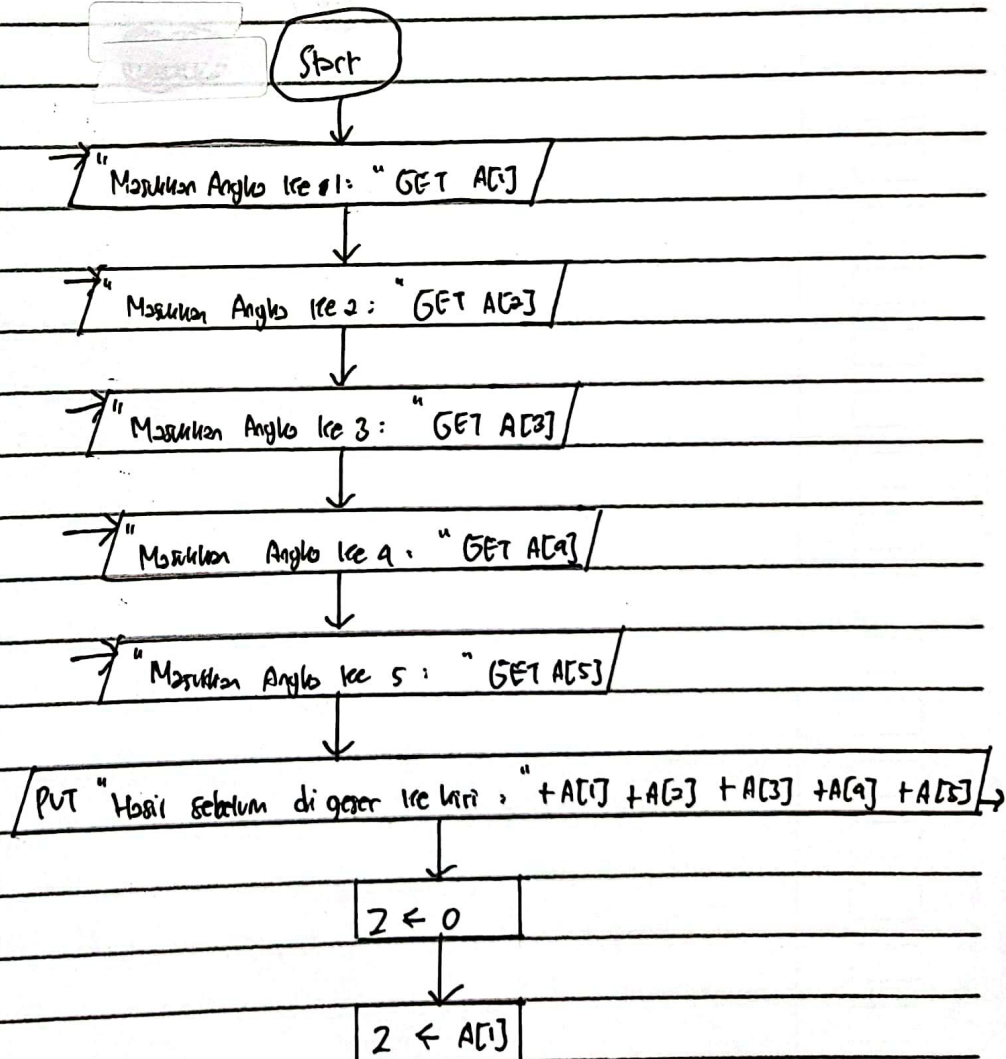 Start
"Masukkan Angka ke 1: " GET A[1]
"Masukkan Angka ke 2: " GET A[2]
"Masukkan Angka ke 3: " GET A[3]
"Masukkan Angka ke 4: " GET A[4]
"Masukkan Angka ke 5: " GET A[5]
PUT "Hasil sebelum di geser ke kiri : " + A[1] + A[2] + A[3] + A[4] + A[5]
Z ← 0
Z ← A[1]